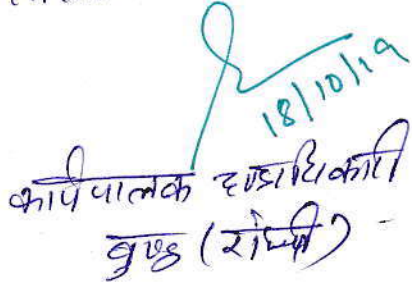 18/10/19
कार्यपालक दण्डाधिकारी
बुण्डू (राँची)